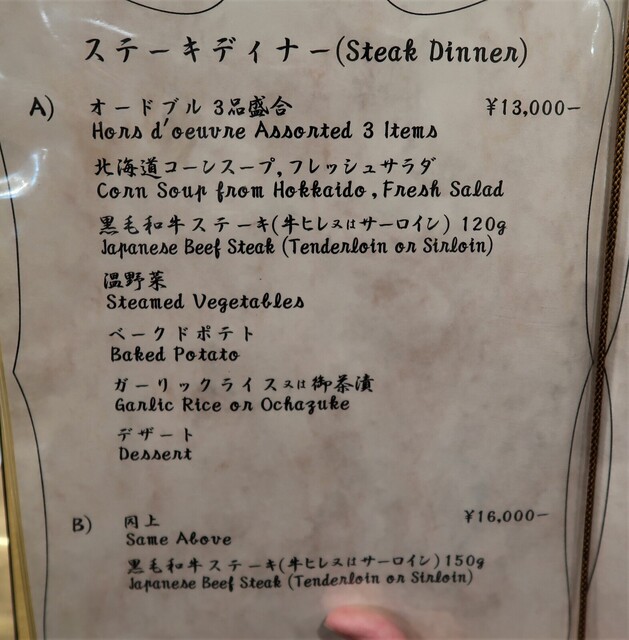 ステーキディナー(Steak Dinner)
A) オードブル 3品盛合 ¥13,000−
Hors d'oeuvre Assorted 3 Items
北海道コーンスープ,フレッシュサラダ
Corn Soup from Hokkaido, Fresh Salad
黒毛和牛ステーキ(牛ヒレ又はサーロイン) 120g
Japanese Beef Steak (Tenderloin or Sirloin)
温野菜
Steamed Vegetables
ベークドポテト
Baked Potato
ガーリックライス又は御茶漬
Garlic Rice or Ochazuke
デザート
Dessert
B) 同上 ¥16,000−
Same Above
黒毛和牛ステーキ(牛ヒレ又はサーロイン) 150g
Japanese Beef Steak (Tenderloin or Sirloin)